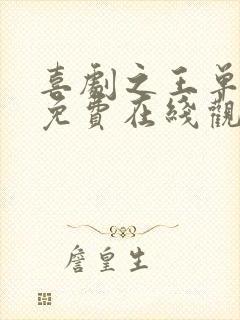 喜劇之王单
免費在綫觀
詹皇生